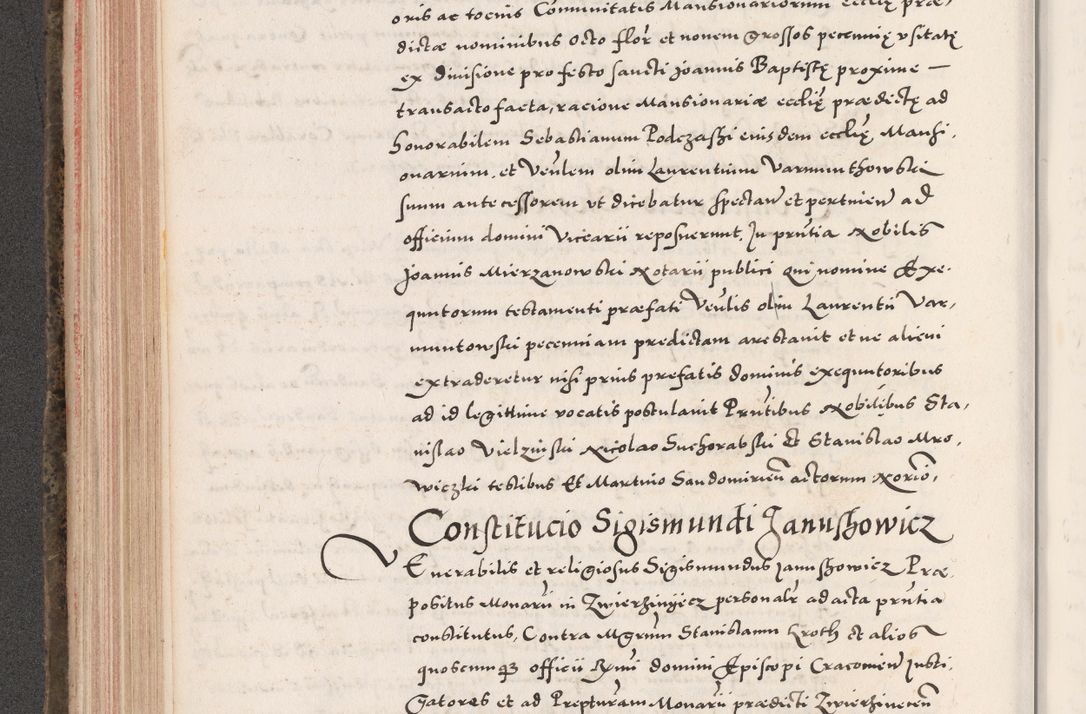 oris ac tocius Communitatis Mansionariorum ecclię præ-
dictæ nominibus octo flor et nonem grossos pecunię vsitatę
ex diuisione pro festo sancti Joannis Baptistę proxime —
transacto facta, racione Mansionariæ ecclię prædictę ad
honorabilem Sebastianum Podczaszki eiusdem ecclię Mansi,
onarium, et Venlem olim Laurentium Varmunthowski
suum antecessorem vt dicebatur spectan et pertinen ad
officium domini Vicearii reposuerunt, In prntia Nobilis
Joannis Mierzanowski Notarii publici qui nomine Exe-
quutorum testamenti præfati Venlis olim Laurentii Var,
muntowski pecuniam predictam arestauit et ne alicui
extraderetur nisi prius prefatis dominis exequutoribus
ad id legittime vocatis postulauit Prntibus Nobilibus Sta,
nislao Vielzinski Nicolao Suchorabski Et Stanislao Mro,
wiczki testibus Et Martino Sandomirien actorum Norio,
Constitucio Sigismundi Janushowicz
Venerabilis et religiosus Sigismundus Janushowicz Præ-
positus Monarii in Zwierziniecz personalr ad acta prntia
constitutus, Contra Mgrum Stanislaum Kroth Et alios
quoscunq3 officii Rmi domini Episcopi Cracouien Insti,
Gatores et ad Prepturam Monarii prædicti Zwierzinecen